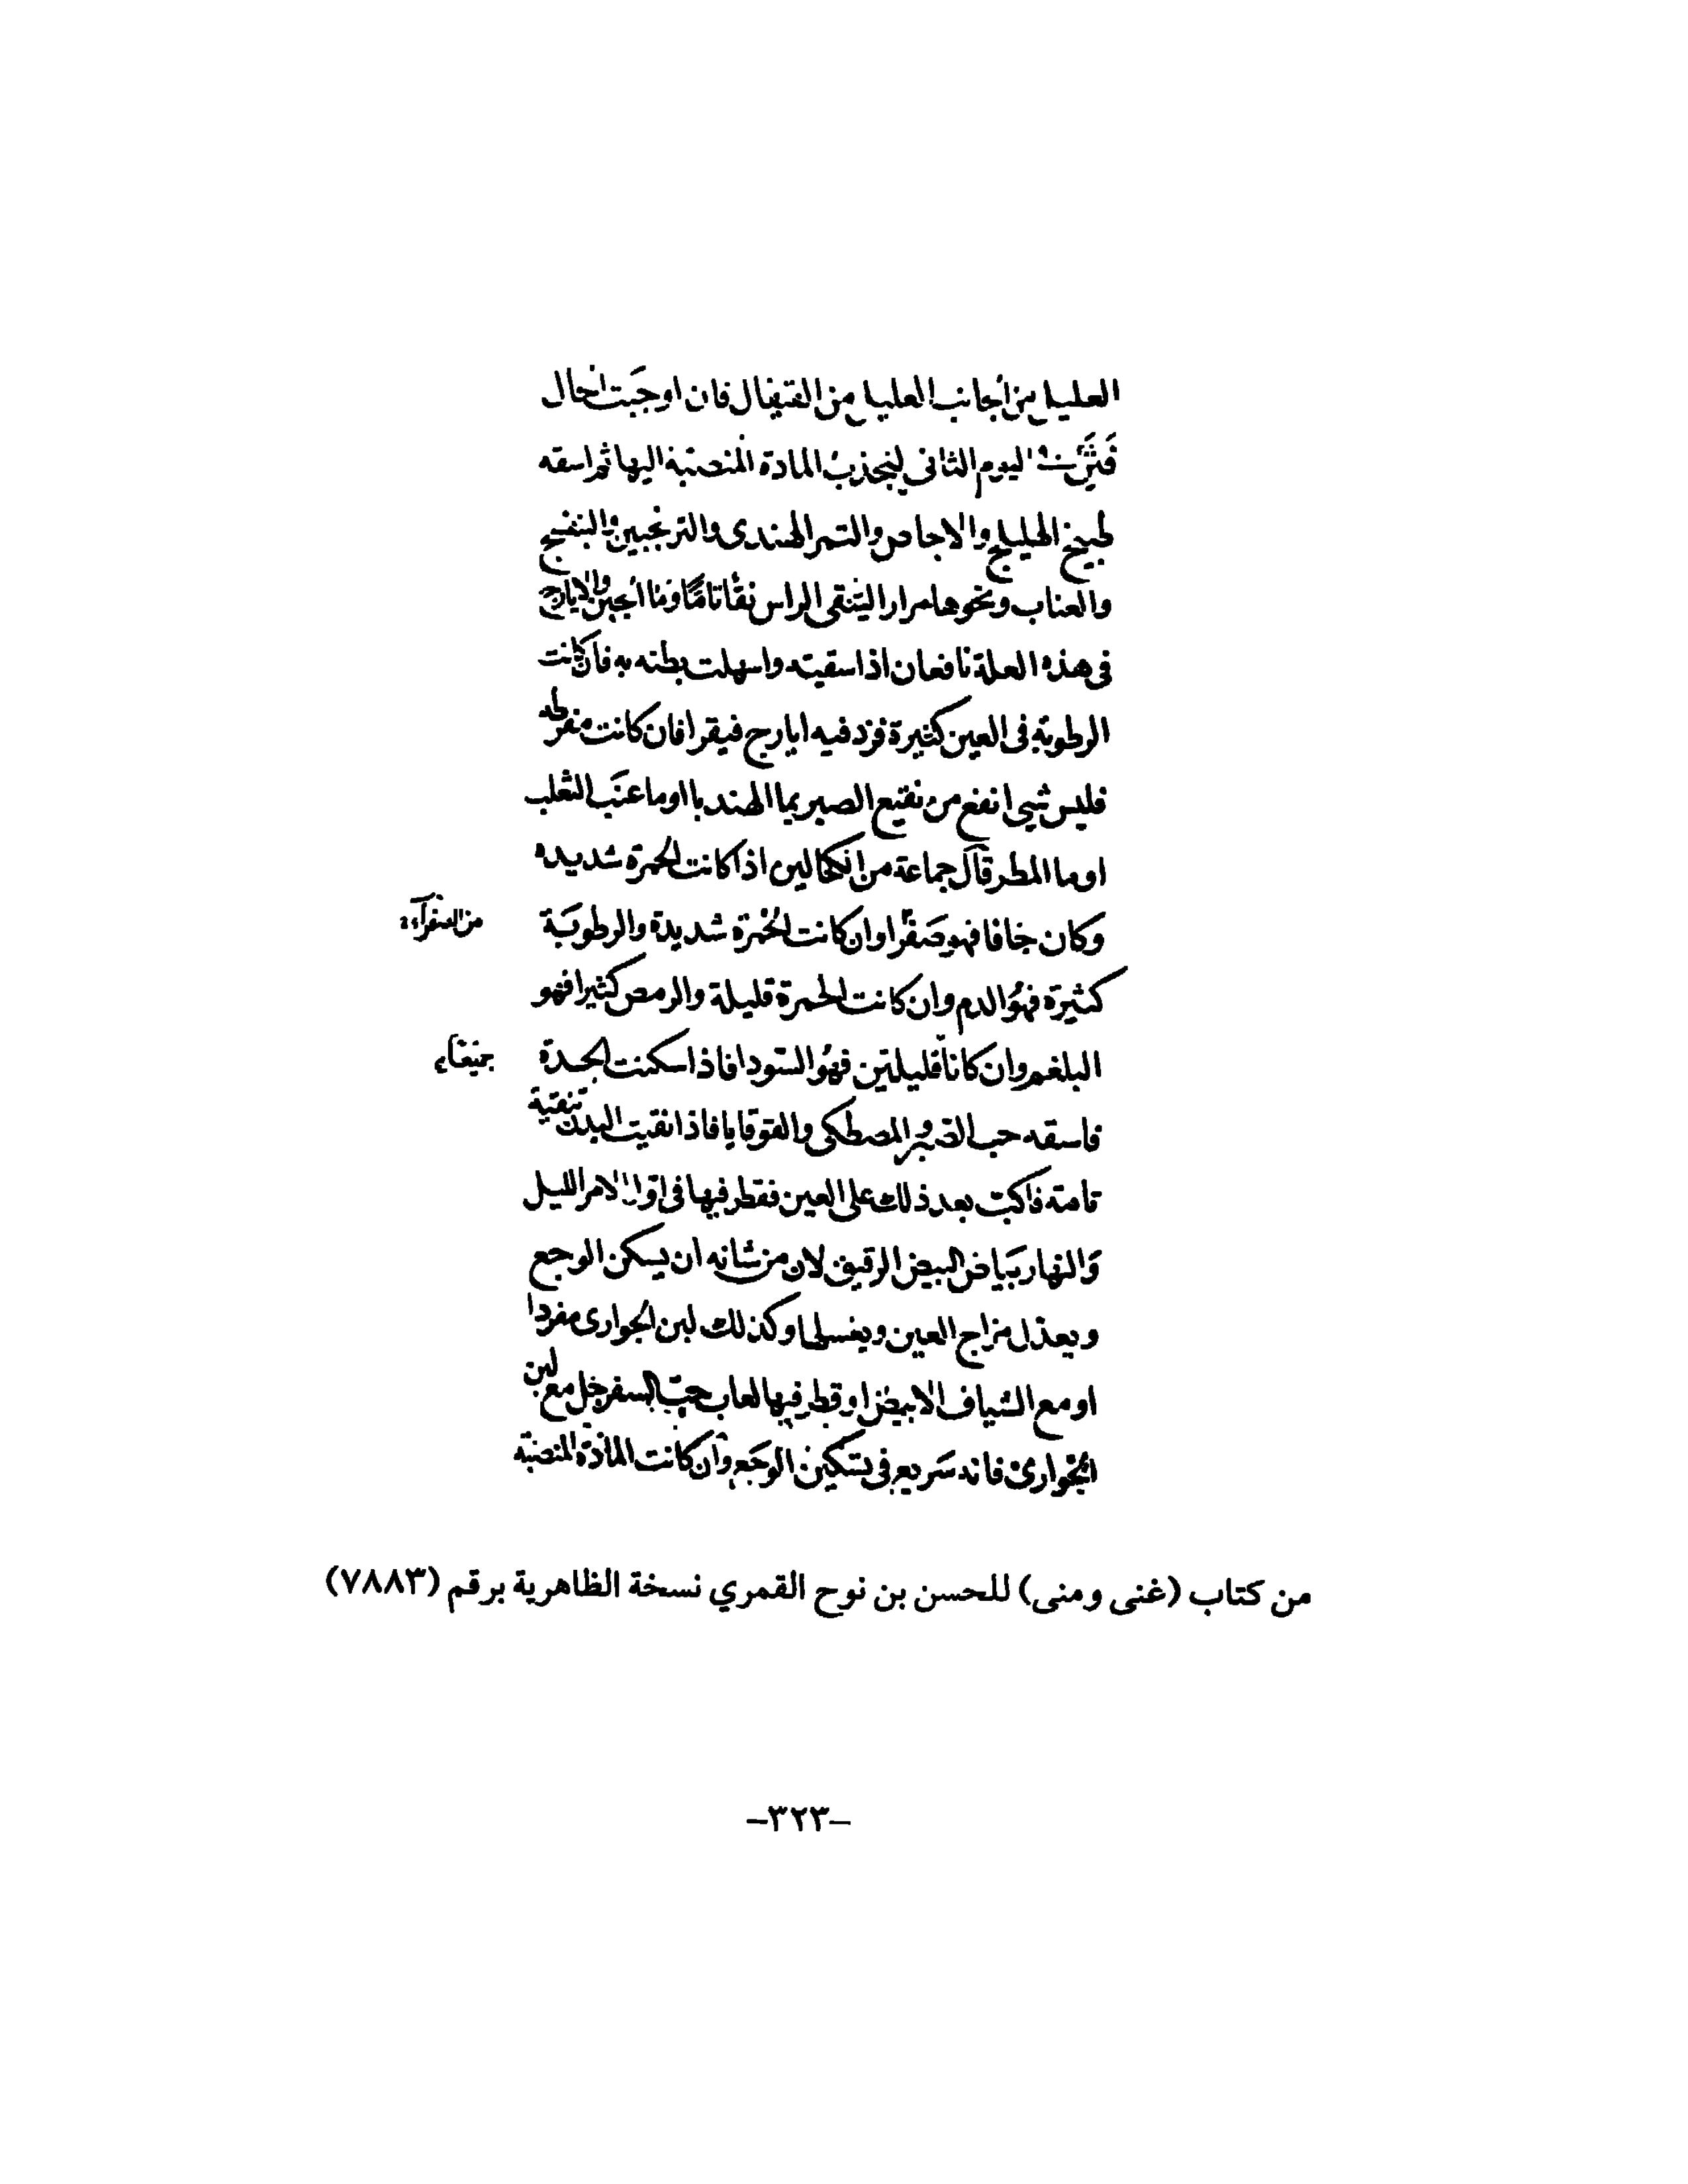 العليل من الجانب العليل من القيفال فان اوجبت الحال
فثن اليوم الثانى لينجذب المادة المنصبة اليها ثم اسقه
طبيخ الهليلج والاجاص والتمر الهندى والترنجبين والبنفسج
والعناب ونحوها مرارا لينقى الراس نقا تاما وما الجبن والايارج
فى هذه العلة نافعان اذا سقيته واسهلت بطنه به فان كانت
الرطوبة فى العين كثيرة فزد فيه ايارج فيقرا فان كانت مفرطه
فليس شيى انفع من نقيع الصبر بما الهندبا او ما عنب الثعلب
او ما المطر قال جماعة من الكحالين اذا كانت الحمرة شديده
وكان جافا فهو صفرا وان كانت الحمرة شديدة والرطوبة
من الصفراء
كثيرة فهو الدم وان كانت الحمرة قليلة والرمص كثيرا فهو
البلغم وان كانا قليلتين فهو السودا فاذا سكنت الحدة
جميعاء
فاسقه حب الصبر والمصطكى والقوقايا فاذا نقيت البدن تنقية
تامة فاكبت بعد ذلك على العين فقطر فيها فى اول الامر الليل
والنهار بياض البيض الرقيق لان من شانه ان يسكن الوجع
ويعدل مزاج العين ويغسلها وكذلك لبن الجوارى مفردا
او مع الشياف الابيض او قطر فيها لعاب حب السفرجل مع لبن
الجوارى فانه سريع فى تسكين الوجع وان كانت المادة المنصبة
من كتاب (غنى ومنى) للحسن بن نوح القمري نسخة الظاهرية برقم (٧٨٨٣)
-٣٢٣-